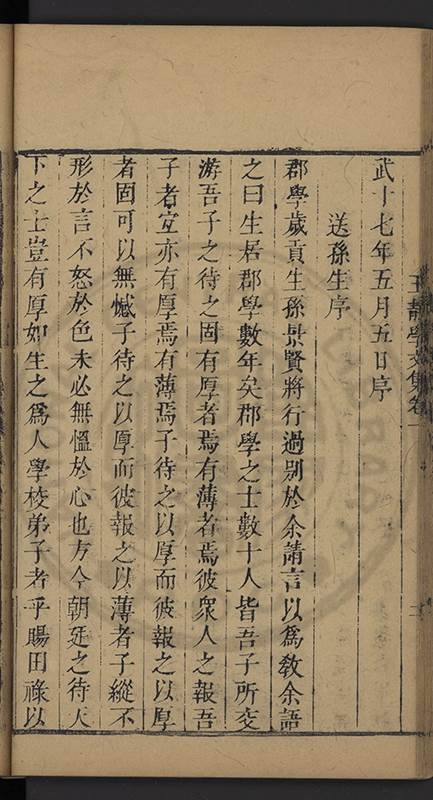 武十七年五月五日序
送孫生序
郡學歲貢生孫景賢將行過別於余請言以爲敎余語
之曰生居郡學數年矣郡學之士數十人皆吾子所交
游吾子之待之固有厚者焉有薄者焉彼衆人之報吾
子者宜亦有厚焉有薄焉子待之以厚而彼報之以厚
者固可以無憾子待之以厚而彼報之以薄者子縱不
形於言不怒於色未必無慍於心也方今朝廷之待天
下之士豈有厚如生之爲人學校弟子者乎賜田祿以
王靜學文集卷一